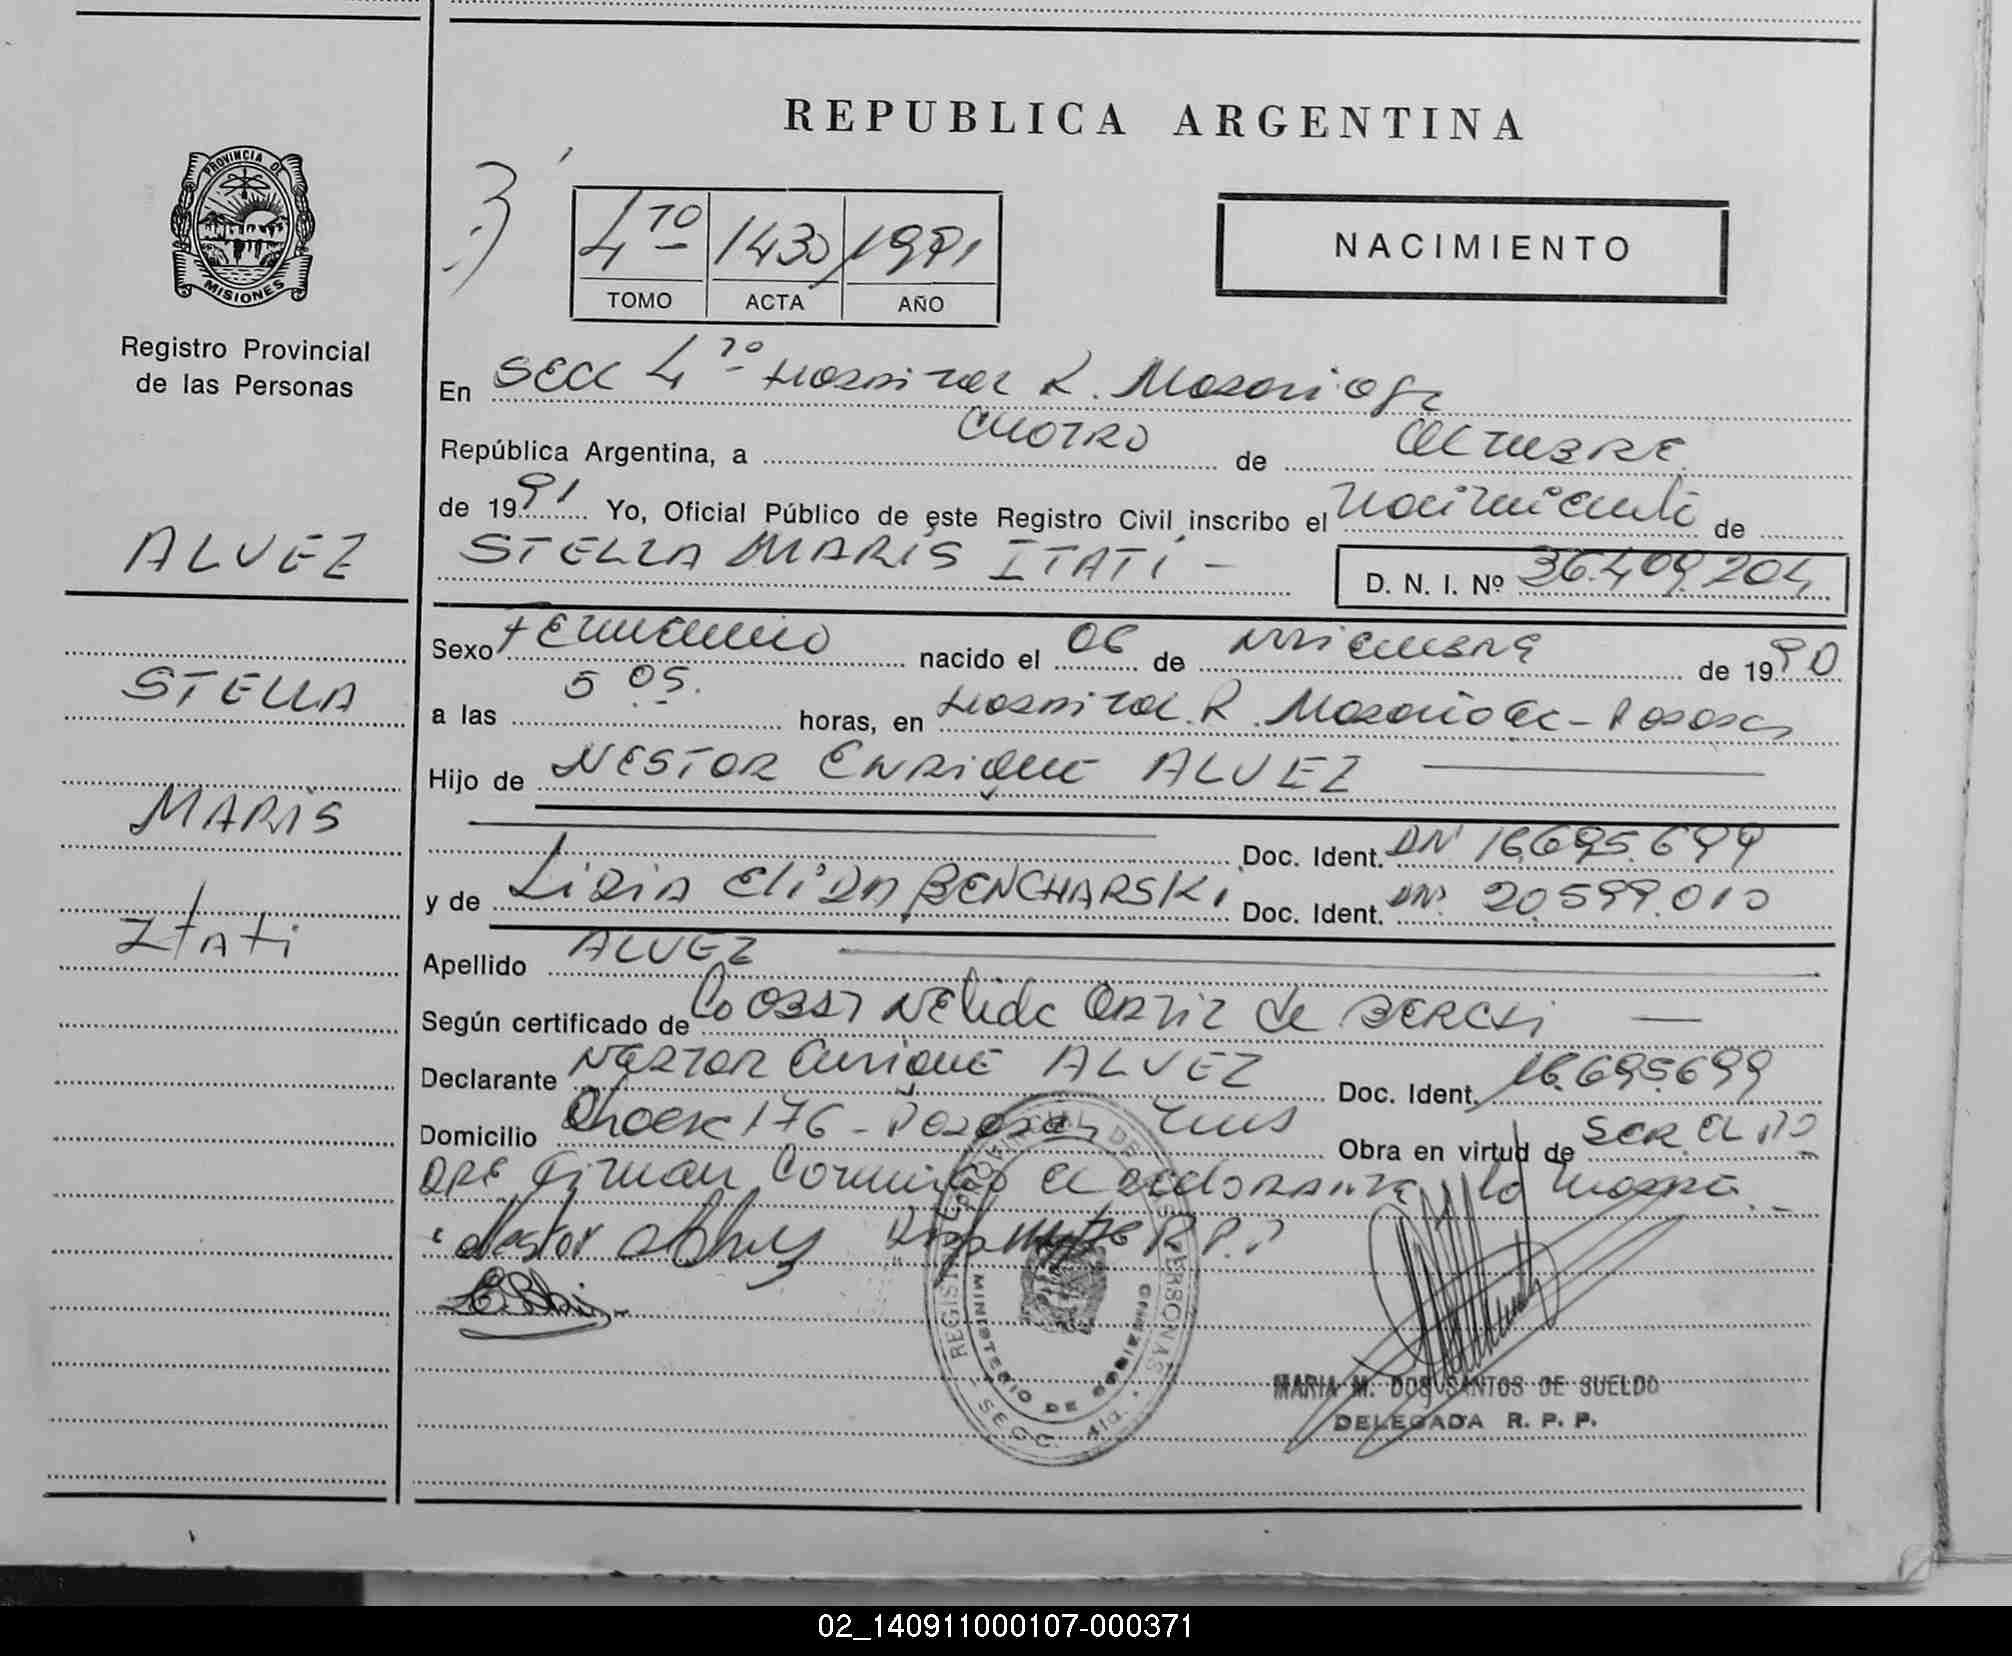 REPUBLICA ARGENTINA
PROVINCIA DE
MISIONES
Registro Provincial
de las Personas
3)
4to 1430 1991
TOMO ACTA AÑO
NACIMIENTO
En Secc 4to Hospital R. Madariaga
República Argentina, a cuatro de octubre
de 1991 Yo, Oficial Público de este Registro Civil inscribo el nacimiento de
STELLA MARIS ITATI - D. N. I. Nº 36.409.204
ALVEZ
STELLA
MARIS
Itati
Sexo Femenino nacido el 06 de de 1990
a las 5 05. horas, en Hospital R. Madariaga - Posadas
Hijo de NESTOR Enrique ALVEZ
Doc. Ident. DNI 16.695.699
y de Lidia Elida BENCHARSKi Doc. Ident. DNI 20.599.010
Apellido ALVEZ
Según certificado de La Obst Nelida Ortiz de
Declarante Nestor Enrique ALVEZ Doc. Ident. 16.695.699
Domicilio 176 - Posadas Obra en virtud de ser el
que firman el declarante la madre
Nestor R.P.P
REGIST PROVINCIAL DE LAS PERSONAS
MINISTERIO DE GOBIERNO
SECC. 4ta.
MARIA M. DOS SANTOS DE SUELDO
DELEGADA R. P. P.
02_140911000107-000371